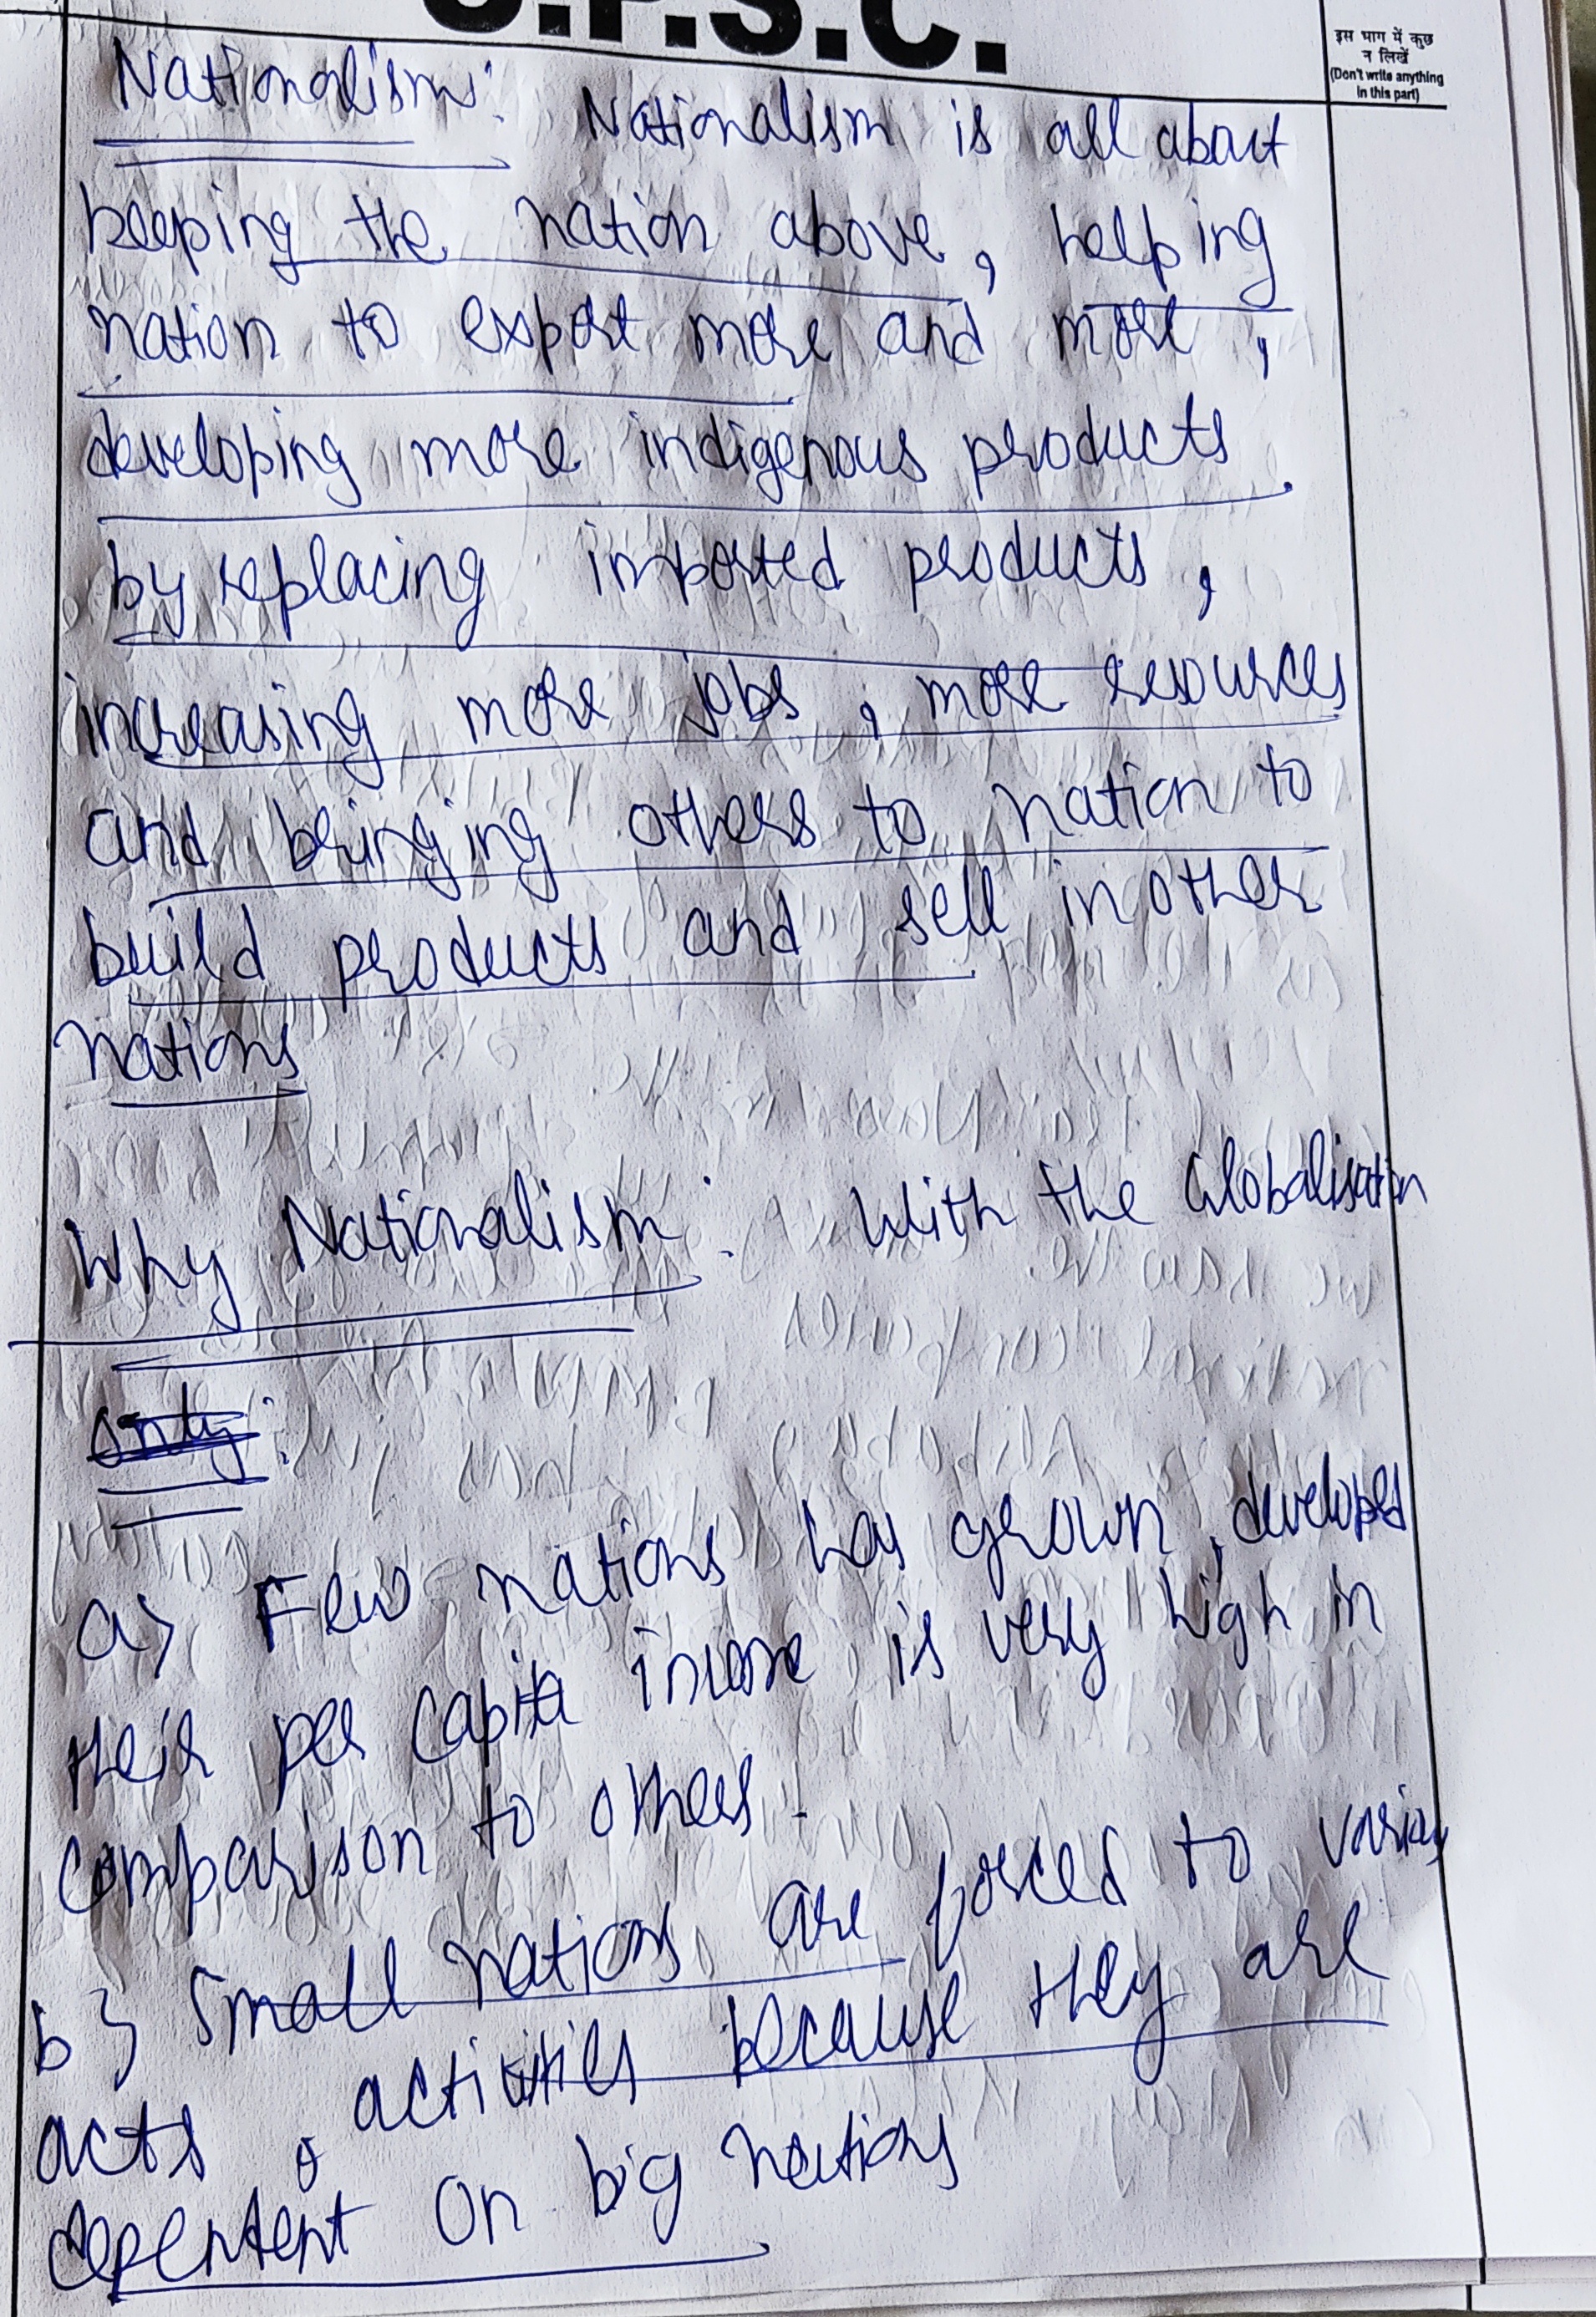 U.P.S.C.
इस भाग में कुछ
न लिखें
(Don't write anything
in this part)
Nationalism: Nationalism is all about
keeping the nation above, helping
nation to export more and more,
developing more indigenous products
by replacing imported products,
increasing more jobs, more resources
and bringing others to nation to
build products and sell in other
nations
Why Nationalism: With the Globalisation
only:
a) Few nations has grown, developed
their per capita income is very high in
comparison to others.
b) Small nations are forced to various
acts, activities because they are
dependent on big nations